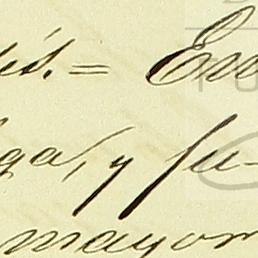 is. = En
ga, y fu-
mayor